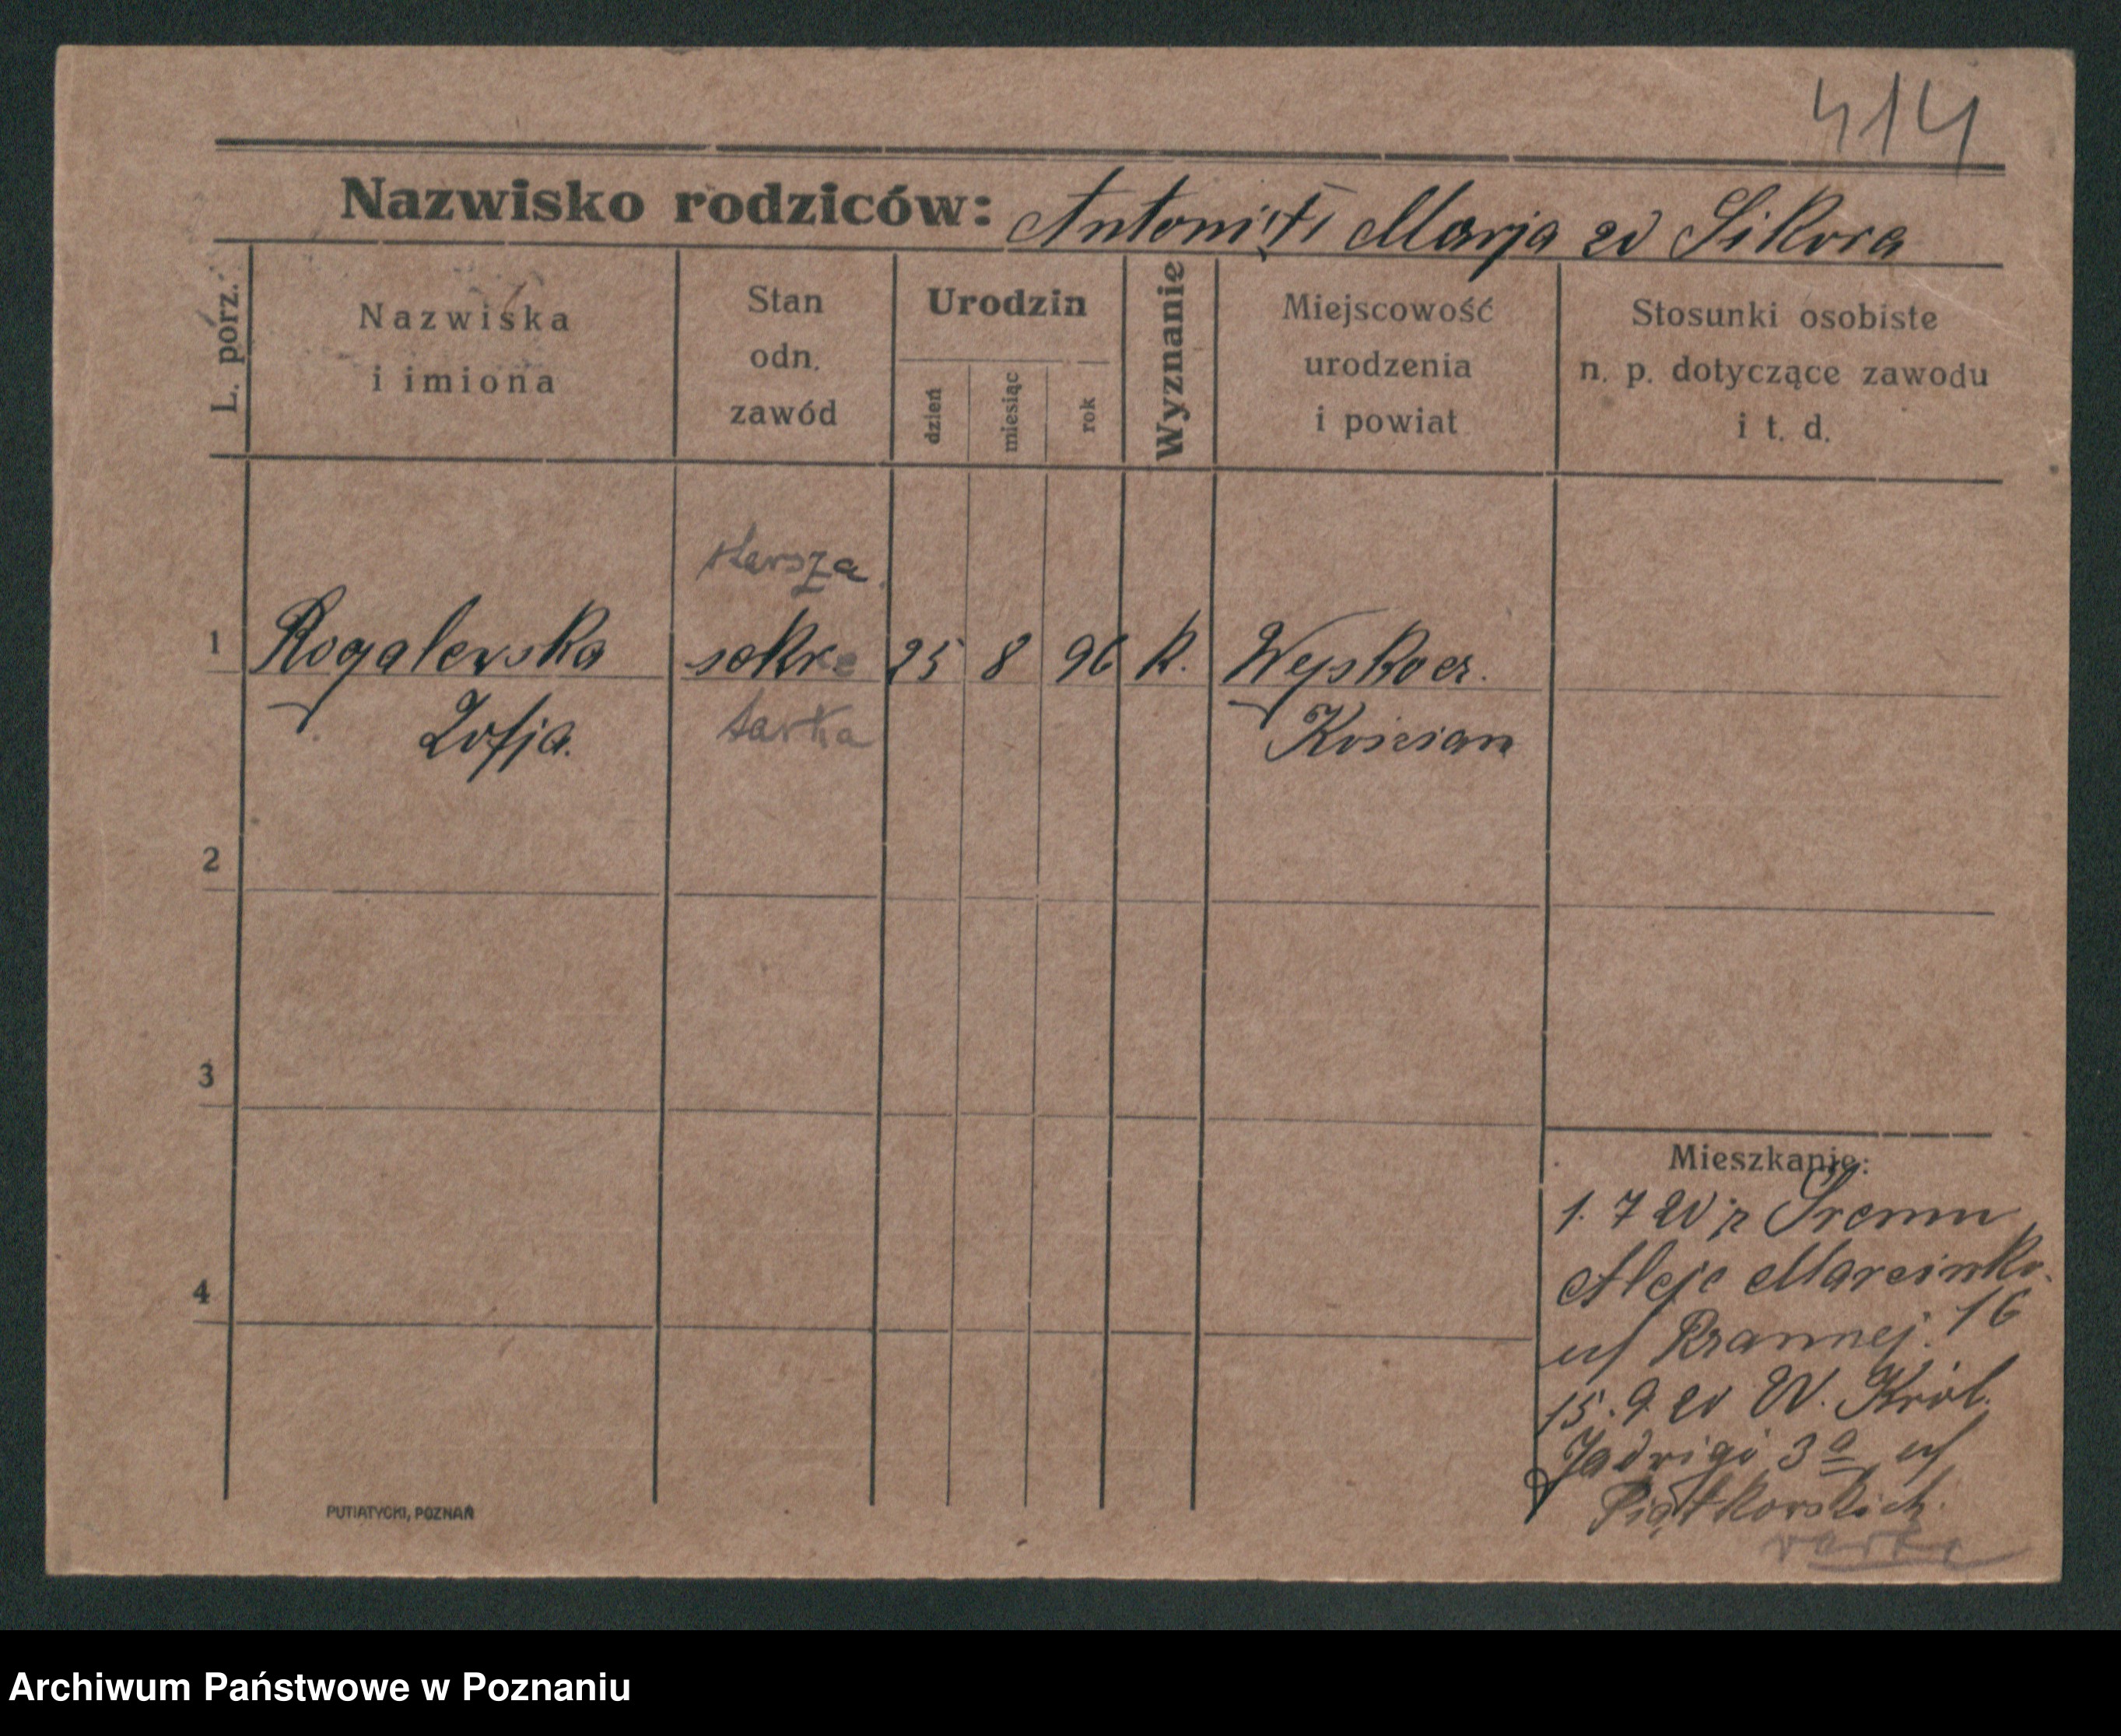 414
Nazwisko rodziców: Antoni i Marja zd Sikora
L. porz.
Nazwiska
i imiona
Stan
odn.
zawód
Urodzin
dzień
miesiąc
rok
Wyznanie
Miejscowość
urodzenia
i powiat
Stosunki osobiste
n. p. dotyczące zawodu
i t. d.
starsza
1 Rogalewska sekre 25 8 96 k.
Zofja. tarka Kościan
2
3
4
Mieszkanie:
1. 7 20 z Śremu
Aleje Marcinko.
16
15. 9 20 W. Król.
Jadwigi 3a
Piątkowskich.
PUTIATYCKI, POZNAŃ
Archiwum Państwowe w Poznaniu